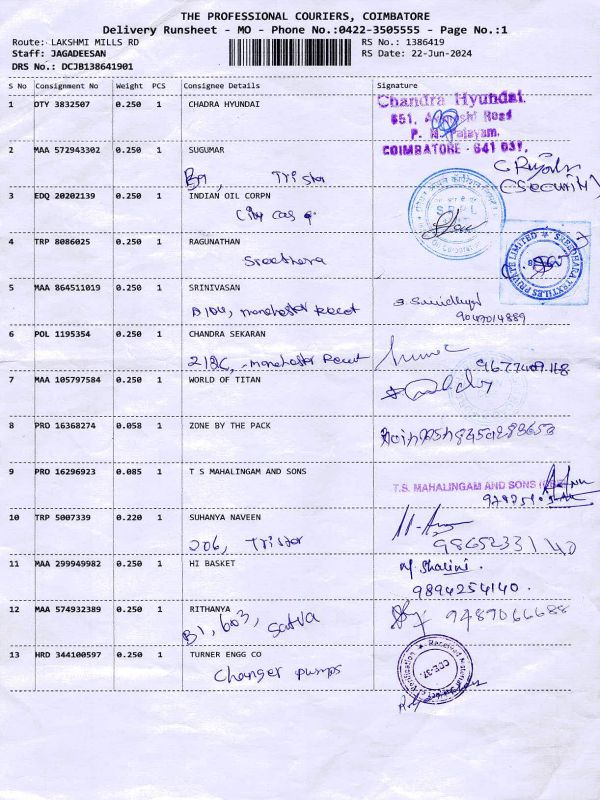 THE PROFESSIONAL COURIERS, COIMBATORE
Delivery Runsheet - MO - Phone No.:0422-3505555 - Page No.:1
Route: LAKSHMI MILLS RD
RS No.: 1386419
Staff: JAGADEESAN
RS Date: 22-Jun-2024
DRS No.: DCJB138641901
S No Consignment No Weight PCS Consignee Details Signature
1 DTY 3832507 0.250 1 CHADRA HYUNDAI
Chandra Hyundai.
651, Road
P. N. Palayam,
COIMBATORE - 641 037.
2 MAA 572943302 0.250 1 SUGUMAR
Tristar
(Security)
3 EDQ 20202139 0.250 1 INDIAN OIL CORPN
City Gas
4 TRP 8086025 0.250 1 RAGUNATHAN
SREEDHARA TEXTILES PRIVATE LIMITED
5 MAA 864511019 0.250 1 SRINIVASAN
manchester Recot
9047014889
6 POL 1195354 0.250 1 CHANDRA SEKARAN
manchester Recot
7 MAA 105797584 0.250 1 WORLD OF TITAN
8 PRO 16368274 0.058 1 ZONE BY THE PACK
9 PRO 16296923 0.085 1 T S MAHALINGAM AND SONS
T.S. MAHALINGAM AND SONS
10 TRP 5007339 0.220 1 SUHANYA NAVEEN
206, Tristar
11 MAA 299949982 0.250 1 HI BASKET
M. Shalini.
9894254140.
12 MAA 574932389 0.250 1 RITHANYA
B1, 603, Satva
9489066688
13 HRD 344100597 0.250 1 TURNER ENGG CO
Changer pumps